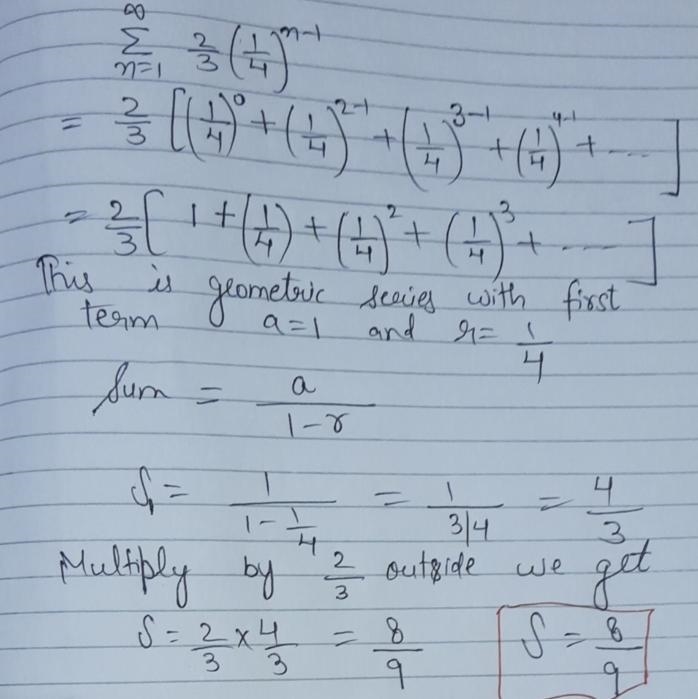 ∞
Σ 2/3 (1/4)^(n-1)
n=1
= 2/3 [(1/4)^0 + (1/4)^(2-1) + (1/4)^(3-1) + (1/4)^(4-1) + ....]
= 2/3 [1 + (1/4) + (1/4)^2 + (1/4)^3 + .....]
This is geometric series with first
term a=1 and r= 1/4
Sum = a/(1-r)
S₁ = 1/(1-1/4) = 1/(3/4) = 4/3
Multiply by 2/3 outside we get
S = 2/3 × 4/3 = 8/9 S = 8/9